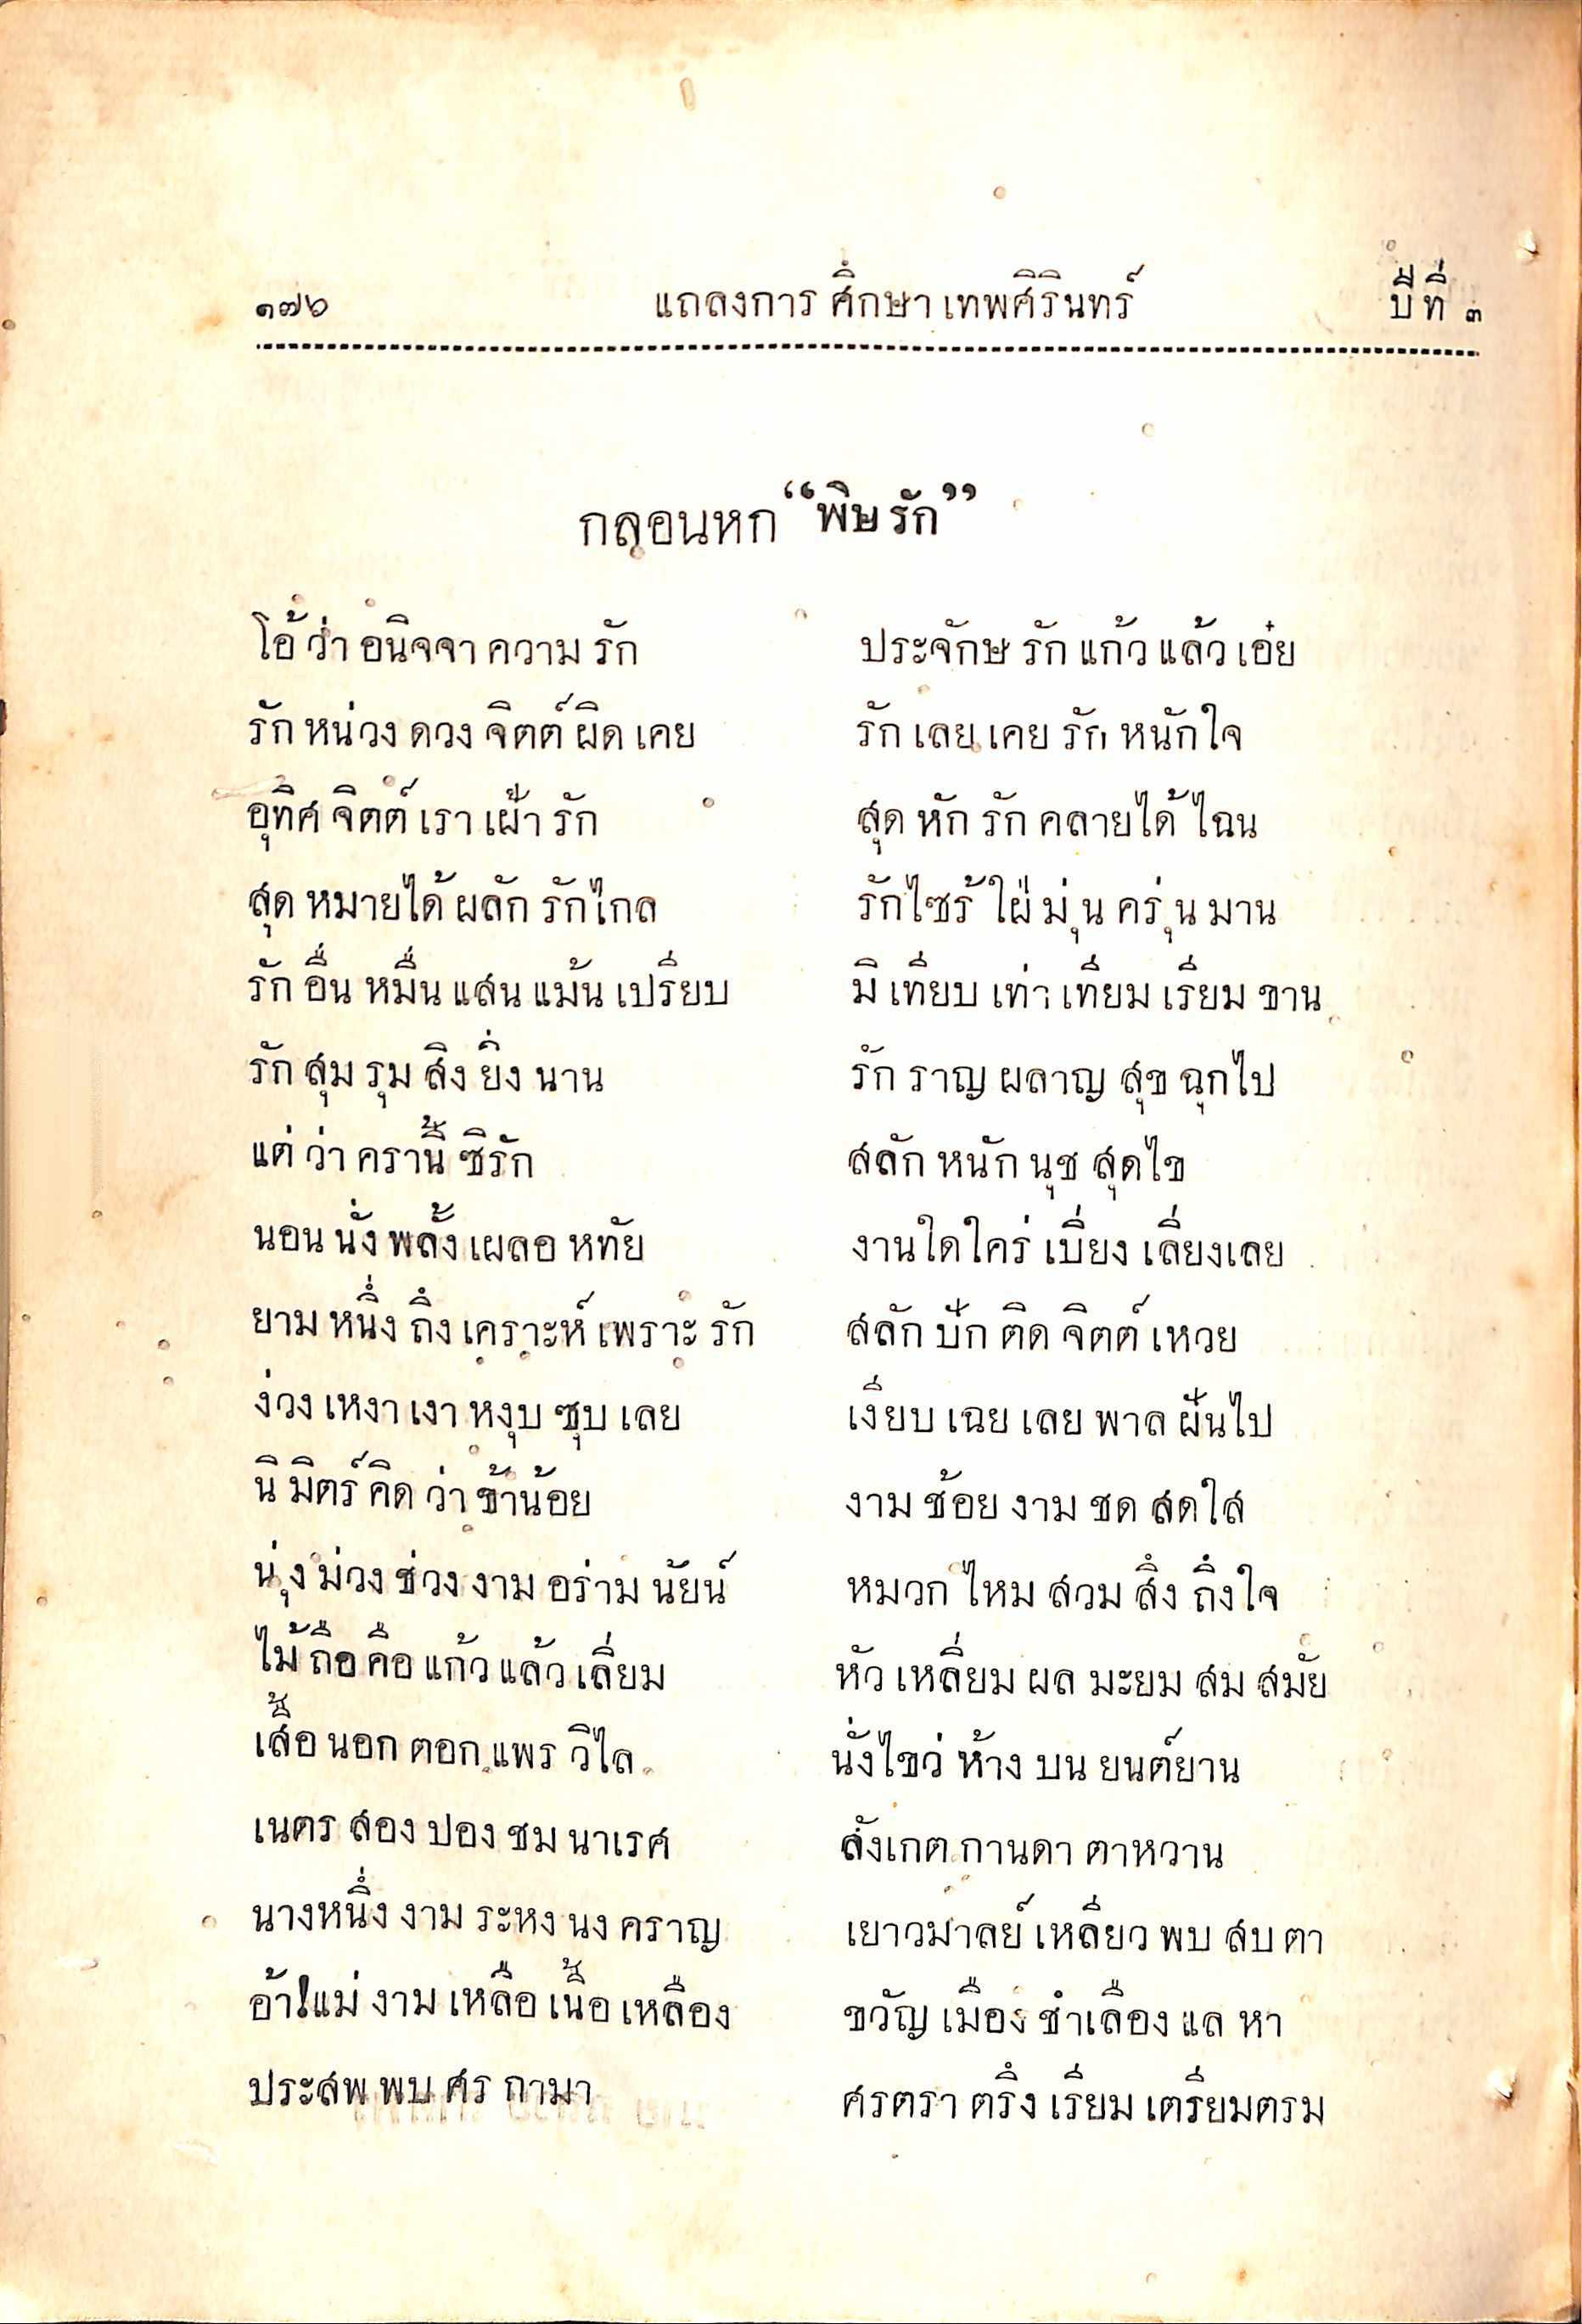 ๑๗๖ แถลงการ ศึกษา เทพศิรินทร์ ปีที่ ๓
กลอนหก “พิษรัก”
โอ้ว่า อนิจจา ความ รัก ประจักษ รัก แก้ว แล้ว เอ๋ย
รัก หน่วง ดวง จิตต์ ผิด เคย รัก เลย เคย รัก หนักใจ
อุทิศ จิตต์ เรา เฝ้า รัก สุด หัก รัก คลายได้ ไฉน
สุด หมายได้ ผลัก รักไกล รักไซร้ ใฝ่ มุ่น ครุ่น มาน
รัก อื่น หมื่น แสน แม้น เปรียบ มิ เทียบ เท่า เทียม เรียม ขาน
รัก สุม รุม สิง ยิ่ง นาน รัก ราญ ผลาญ สุข ฉุกไป
แต่ ว่า ครานี้ ซิรัก สลัก หนัก นุช สุดไข
นอน นั่ง พลั้ง เผลอ หทัย งานใดใคร่ เบี่ยง เลี่ยงเลย
ยาม หนึ่ง ถึง เคราะห์ เพราะ รัก สลัก ปัก ติด จิตต์ เหวย
ง่วง เหงา เงา หงุบ ซุบ เลย เงียบ เฉย เลย พาล ฝันไป
นิ มิตร์ คิด ว่า ข้าน้อย งาม ช้อย งาม ชด สดใส
นุ่ง ม่วง ช่วง งาม อร่าม นัยน์ หมวก ไหม สวม สิ่ง ถึงใจ
ไม้ ถือ คือ แก้ว แล้ว เลี่ยม หัว เหลี่ยม ผล มะยม สม สมัย
เสื้อ นอก ตอก แพร วิไล นั่งไขว่ ห้าง บน ยนต์ยาน
เนตร สอง ปอง ชม นาเรศ สังเกต กานดา ตาหวาน
นางหนึ่ง งาม ระหง นง คราญ เยาวมาลย์ เหลียว พบ สบ ตา
อ้า!แม่ งาม เหลือ เนื้อ เหลือง ขวัญ เมือง ชำเลือง แล หา
ประสพ พบ ศร กามา ศรตรา ตรึง เรียม เตรียมตรม